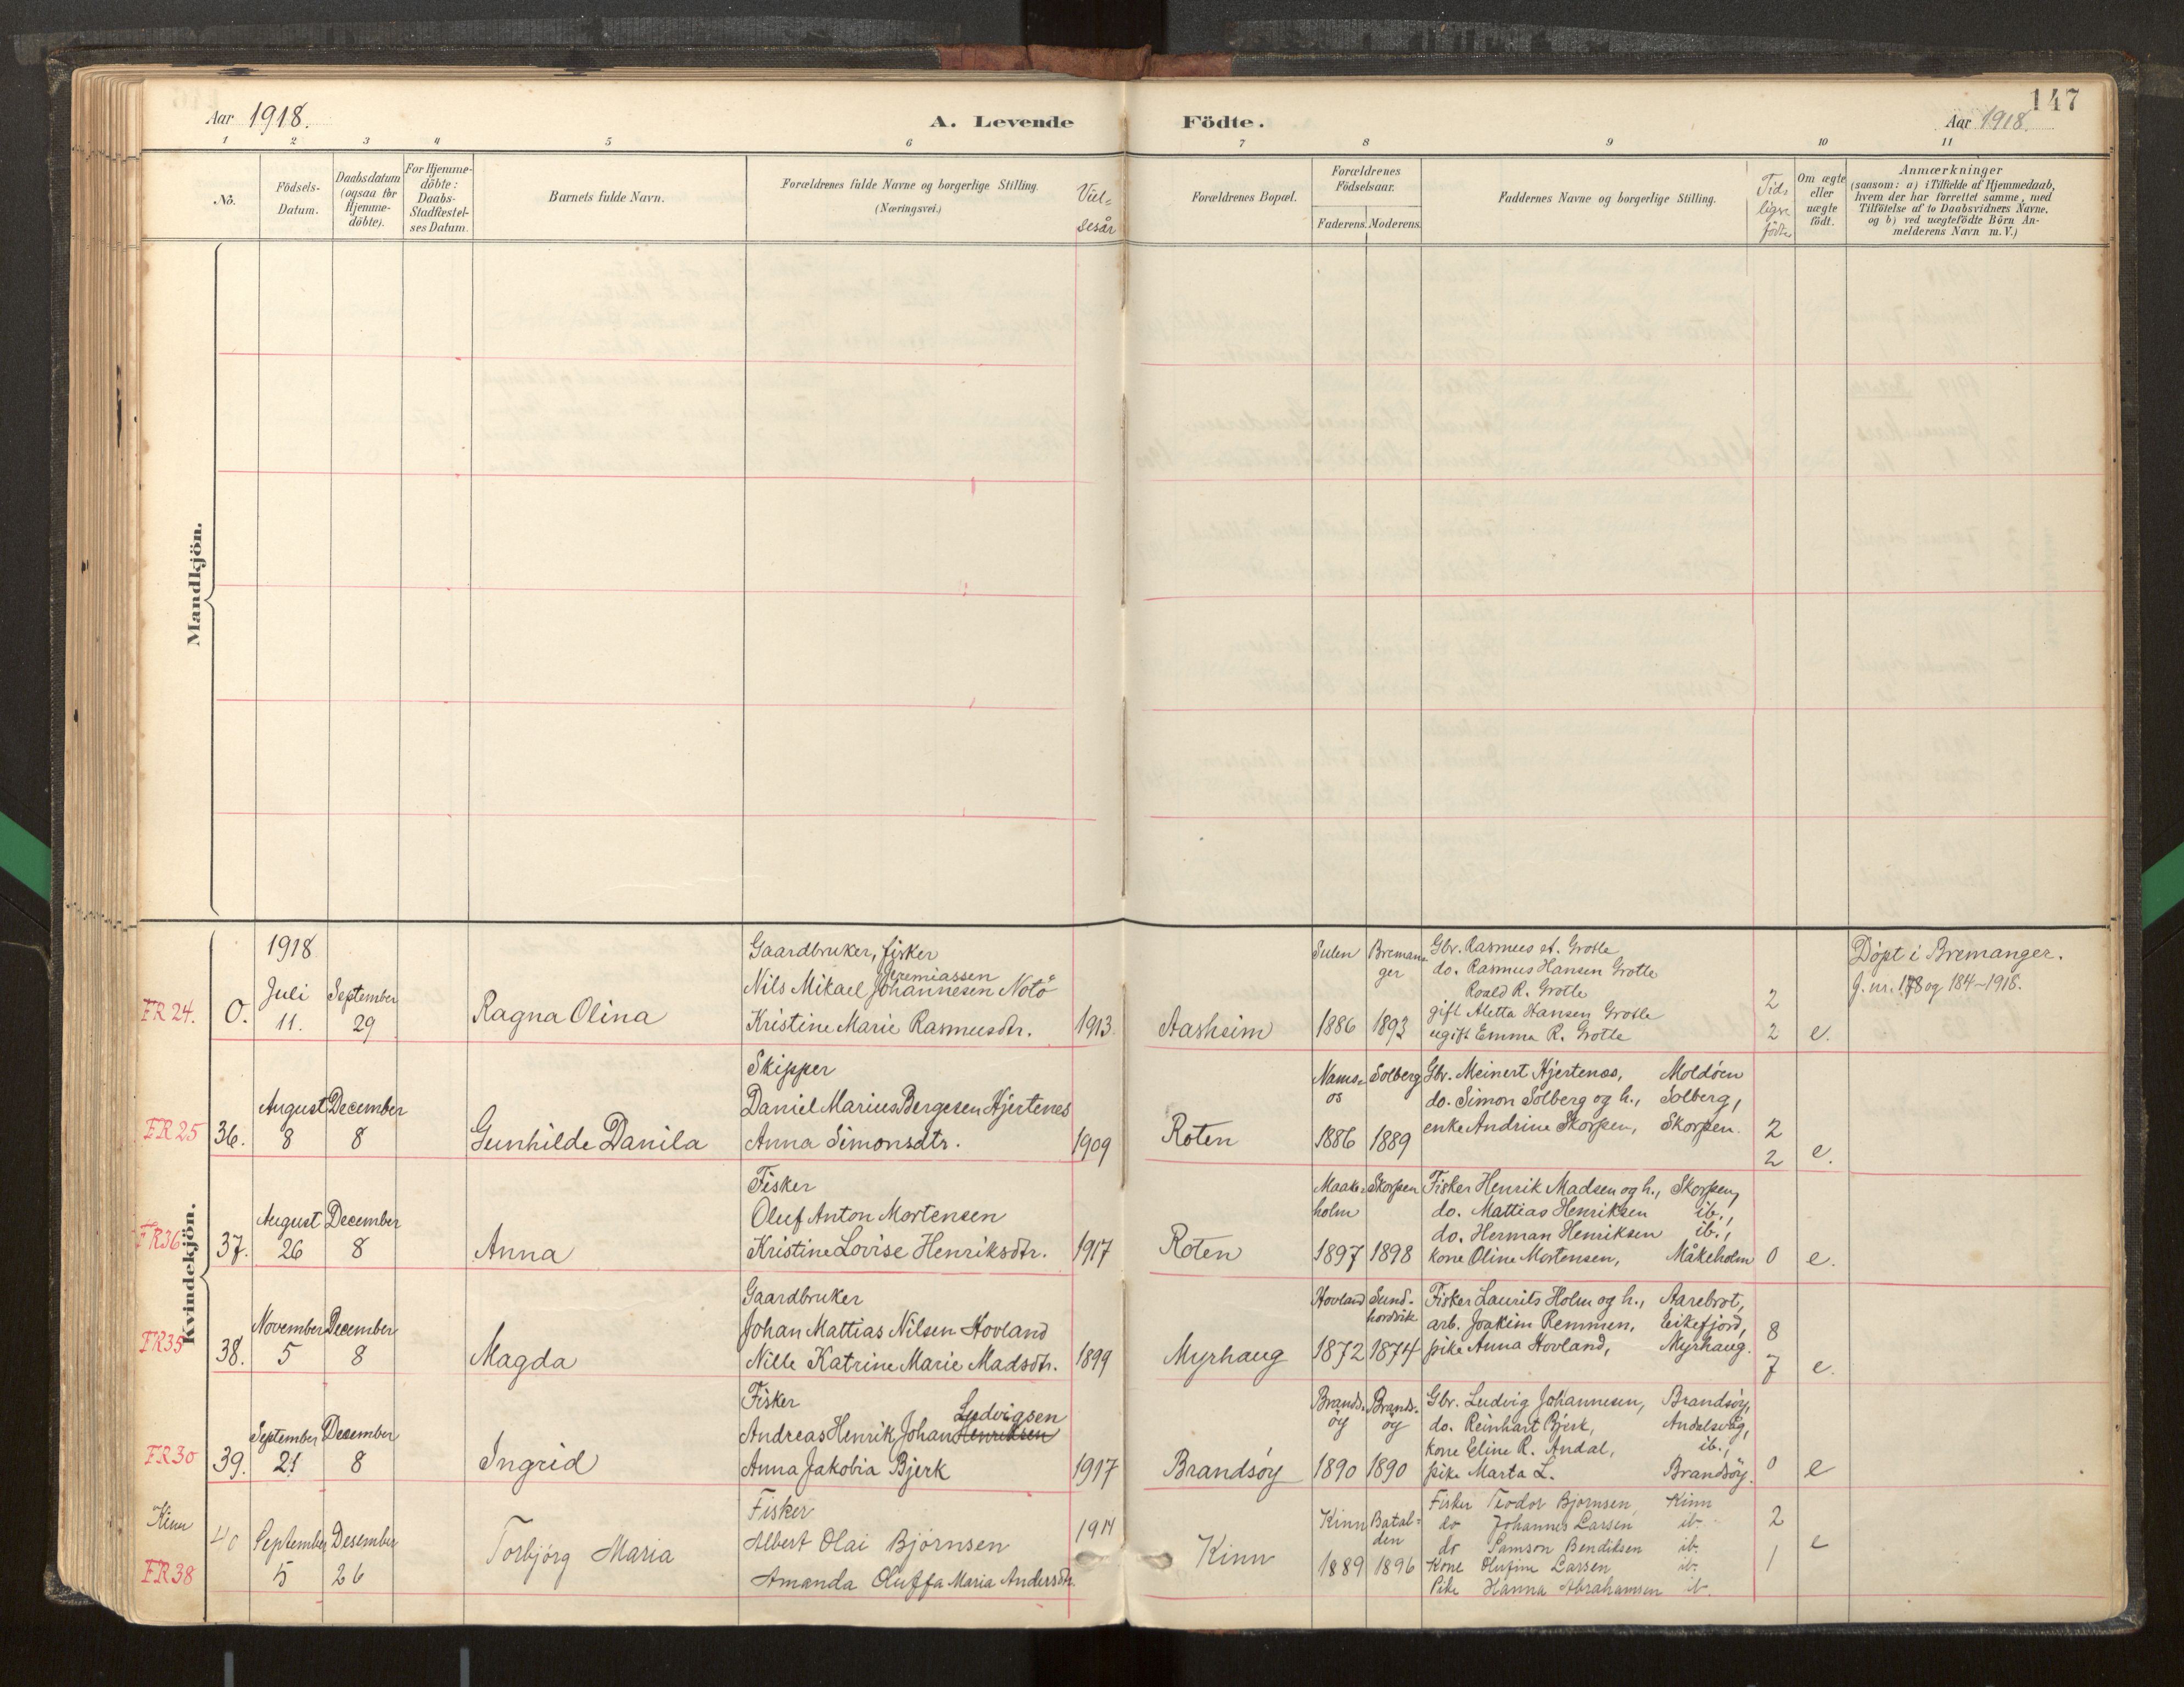 147
Aar 1918.
A. Levende Födte.
Aar 1918.
1 2 3 4 5 6 7 8 9 10 11
Nō.
Födsels-
Datum.
Daabsdatum
(ogsaa for
Hjemme-
döbte).
For Hjemme-
döbte:
Daabs-
Stadfæstel-
ses Datum.
Barnets fulde Navn.
Forældrenes fulde Navne og borgerlige Stilling.
(Næringsvei.)
Viel-
sesår
Forældrenes Bopæl.
Forældrenes
Födselsaar.
Faderens. Moderens.
Faddernes Navne og borgerlige Stilling.
Tid-
ligere
födte
Om ægte
eller
uægte
födt.
Anmærkninger
(saasom: a) i Tilfælde af Hjemmedaab,
hvem der har forrettet samme, med
Tilföielse af to Daabsvidners Navne,
og b) ved uægtefödte Börn An-
melderens Navn m. V.)
Mandkjön.
Kvindekjön.
1918
FR 24.
0.
Juli
11.
September
29
Ragna Olina
Gaardbruker, fisker
Jeremiassen
Nils Mikael Johannesen Notö
Kristine Marie Rasmusdtr.
1913.
Aasheim
Sulen
1886
Breman-
ger
1893
Gbr. Rasmus et. Grotle
do. Rasmus Hansen Grotle
Roald R. Grotle
gift Aletta Hansen Grotle
ugift Emma R. Grotle
2
2
e.
Döpt i Bremanger.
J. nr. 178 og 184-1918.
FR 25
36.
August
8
December
8
Gunhilde Danila
Skipper
Daniel Marius Bergesen Hjertenes
Anna Simonsdtr.
1909
Roten
Nams-
os
1886
Solberg
1889
Gbr. Meinert Hjertenes, Moldöen
do. Simon Solberg og h., Solberg,
enke Andrine Skorpen, Skorpen.
2
2
e.
FR36
37.
August
26
December
8
Anna
Fisker
Oluf Anton Mortensen
Kristine Lovise Henriksdtr.
1917
Roten
Maake-
holm
1897
Skorpen
1898
Fisker Henrik Madsen og h., Skorpen,
do. Mattias Henriksen ib.,
do. Herman Henriksen ib.,
kone Oline Mortensen, Måkeholm
0
e.
FR35
38.
November
5
December
8
Magda
Gaardbruker
Johan Mattias Nilsen Hovland
Nille Katrine Marie Madsdtr.
1899
Myrhaug
Hovland
1872
Sund-
hordvik
1874
Fisker Laurits Holm og h., Aarebrot,
arb. Joakim Remmen, Eikefjord,
pike Anna Hovland, Myrhaug.
8
7
e.
FR30
39.
September
21
December
8
Ingrid
Fisker
Ludvigsen
Andreas Henrik Johan Henriksen
Anna Jakobia Bjerk
1917
Brandsöy
Brands-
öy
1890
Brands-
öy
1890
Gbr. Ludvig Johannesen, Brandsöy,
do. Reinhart Bjerk, Andalsvåg,
kone Eline R. Andal, ib.,
pike Marta L. Brandsöy.
0
e
Kinn
FR38
40
September
5
Desember
26
Torbjörg Maria
Fisker
Albert Olai Björnsen
Amanda Oluffa Maria Andersdtr.
1914
Kinn
Kinn
1889
Batal-
den
1896
Fisker Teodor Björnsen, Kinn
do Johannes Larsen ib.
do Samson Bendiksen ib.
Kone Olufine Larsen ib.
Pike Hanna Abrahamsen ib.
2
1
e